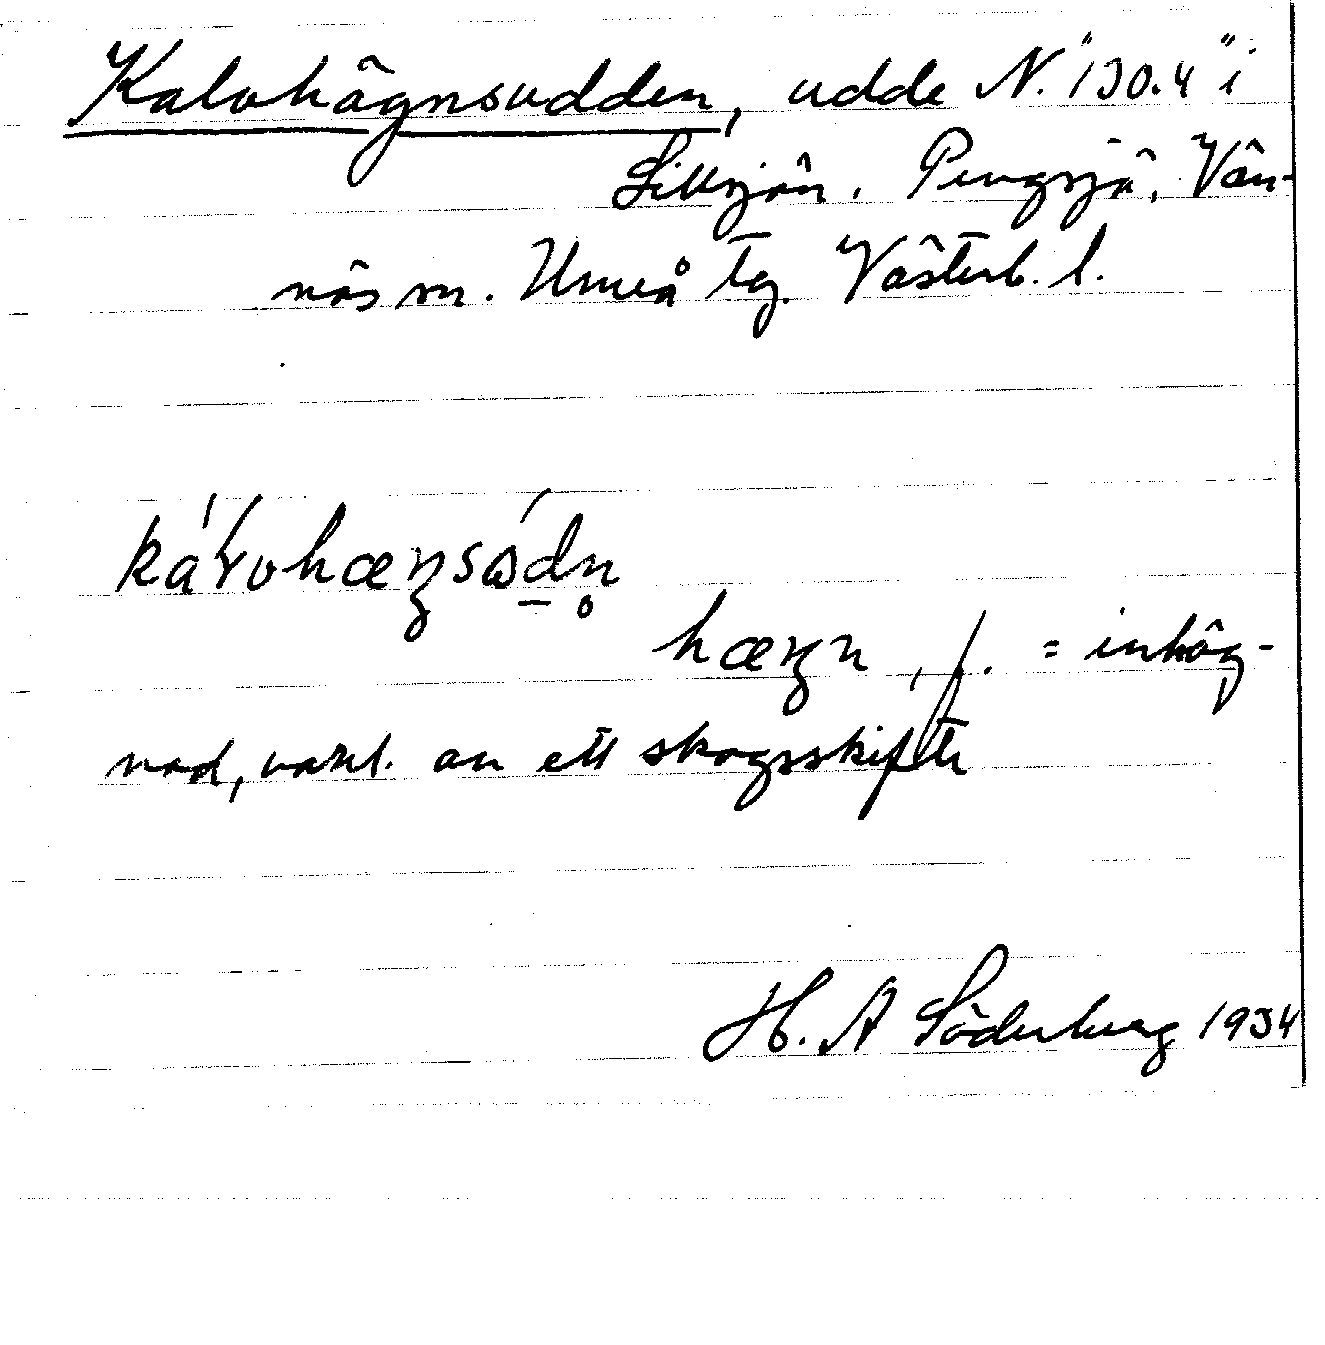 Kalvhägnsudden, udde N. "130.4" i
Sillsjön. Pengsjö, Vän-
näs sn. Umeå tg. Västerb. l.
hægn, f. = inhäg-
nad, vanl. av ett skogsskifte
H. A Söderberg 1934